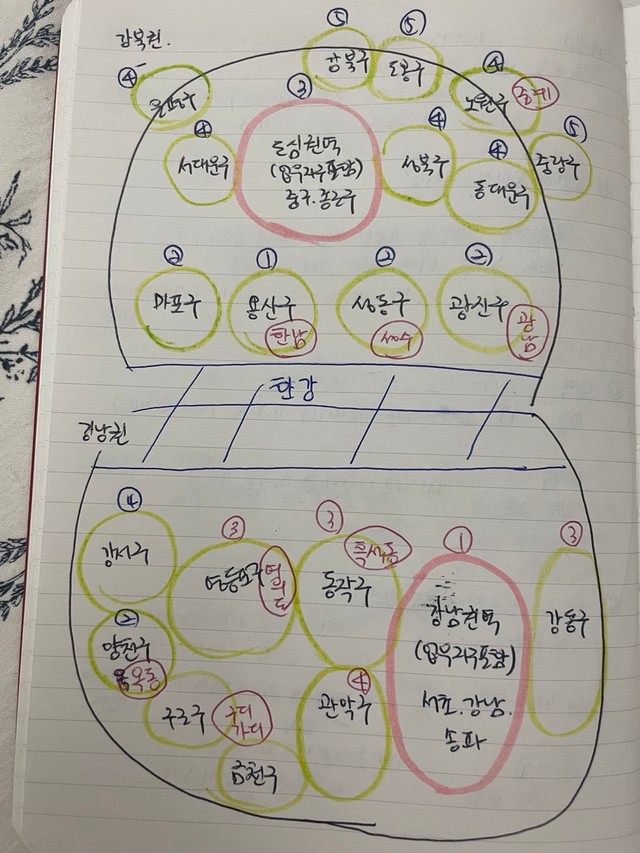 강북권.
⑤
⑤
강북구
도봉구
④
은평구
③
④
노원구
중계
④
서대문구
도심권역
(업무지구포함)
중구.종로구
④
성북구
④
동대문구
⑤
중랑구
②
마포구
①
용산구
한남
②
성동구
성수
②
광진구
광남
한강
강남권
④
강서구
③
영등포구
여의도
③
흑석동
동작구
①
강남권역
(업무지구포함)
서초.강남.
송파
③
강동구
②
양천구
목동
구로구
구디
가디
④
관악구
금천구